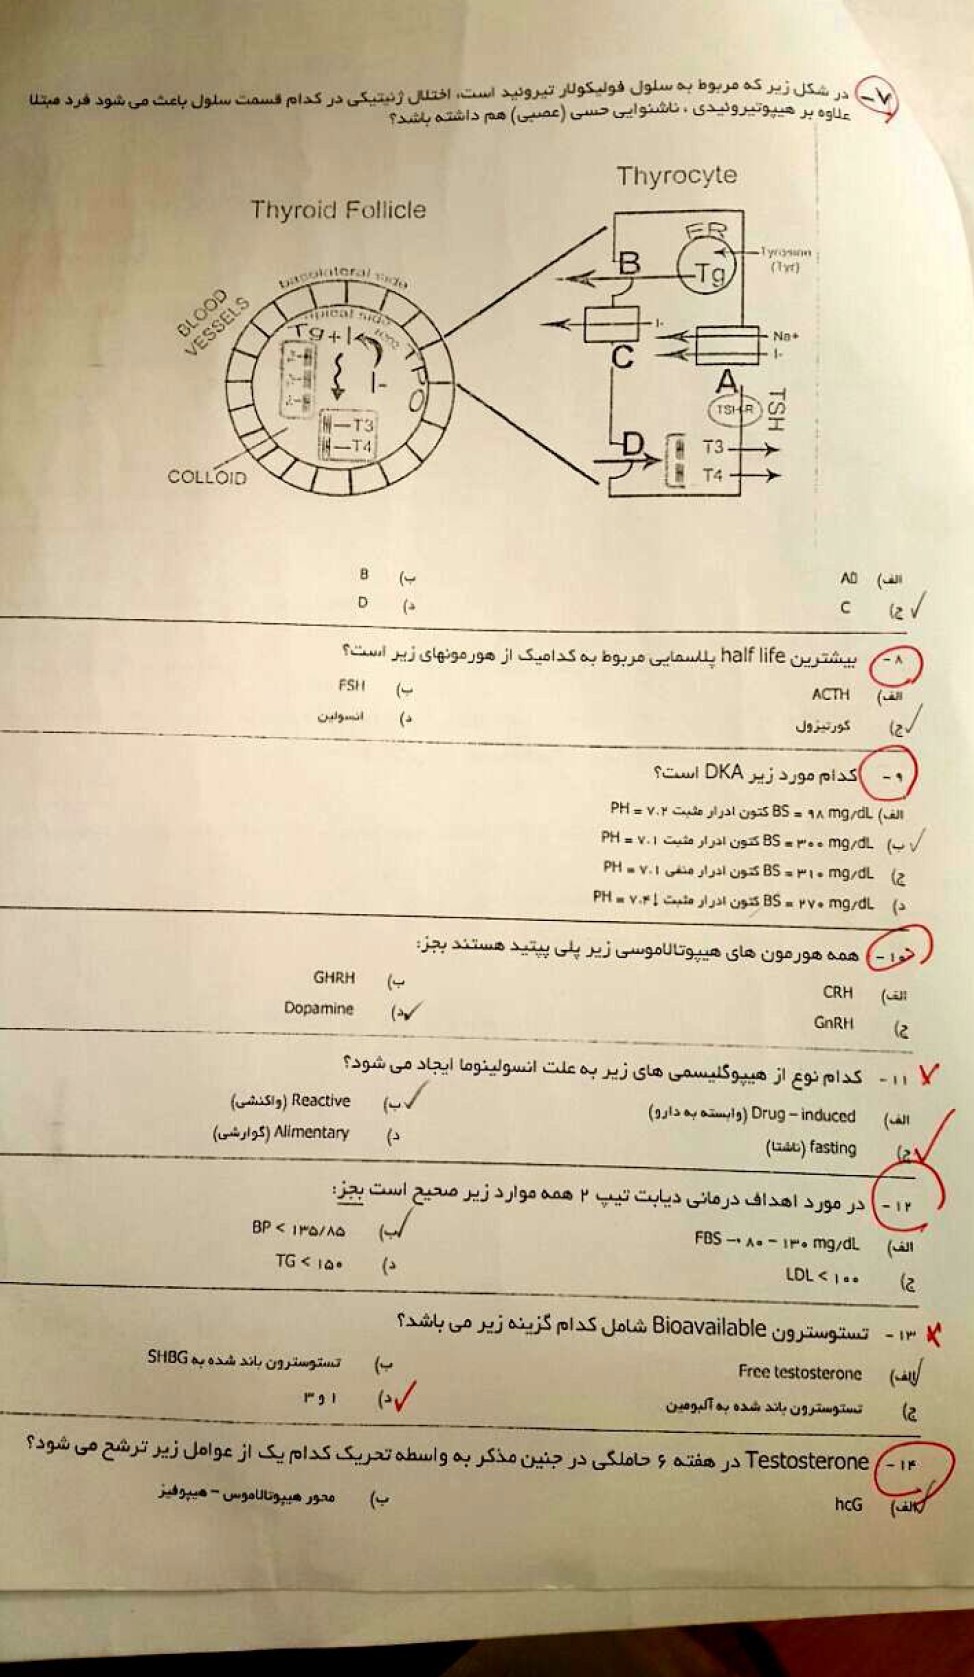 ۷- در شکل زیر که مربوط به سلول فولیکولار تیروئید است، اختلال ژنیتیکی در کدام قسمت سلول باعث می شود فرد مبتلا
علاوه بر هیپوتیروئیدی ، ناشنوایی حسی (عصبی) هم داشته باشد؟
Thyroid Follicle
Thyrocyte
BLOOD VESSELS
basolateral side
apical side
Tg+I
TPO
I-
T3
T4
COLLOID
ER
Tg
Tyrosine
(Tyr)
B
I-
C
Na+
I-
A
TSH-R
TSH
D
T3
T4
الف) A
ب) B
ج) C
د) D
۸- بیشترین half life پلاسمایی مربوط به کدامیک از هورمونهای زیر است؟
الف) ACTH
ب) FSH
ج) کورتیزول
د) انسولین
۹- کدام مورد زیر DKA است؟
الف) BS = ۹۸ mg/dL کتون ادرار مثبت PH = ۷.۲
ب) BS = ۳۰۰ mg/dL کتون ادرار مثبت PH = ۷.۱
ج) BS = ۳۱۰ mg/dL کتون ادرار منفی PH = ۷.۱
د) BS = ۲۷۰ mg/dL کتون ادرار مثبت PH = ۷.۴
۱۰- همه هورمون های هیپوتالاموسی زیر پلی پپتید هستند بجز:
الف) CRH
ب) GHRH
ج) GnRH
د) Dopamine
۱۱- کدام نوع از هیپوگلیسمی های زیر به علت انسولینوما ایجاد می شود؟
الف) Drug – induced (وابسته به دارو)
ب) Reactive (واکنشی)
ج) fasting (ناشتا)
د) Alimentary (گوارشی)
۱۲- در مورد اهداف درمانی دیابت تیپ ۲ همه موارد زیر صحیح است بجز:
الف) FBS → ۸۰ – ۱۳۰ mg/dL
ب) BP < ۱۳۵/۸۵
ج) LDL < ۱۰۰
د) TG < ۱۵۰
۱۳- تستوسترون Bioavailable شامل کدام گزینه زیر می باشد؟
الف) Free testosterone
ب) تستوسترون باند شده به SHBG
ج) تستوسترون باند شده به آلبومین
د) ۱ و ۳
۱۴- Testosterone در هفته ۶ حاملگی در جنین مذکر به واسطه تحریک کدام یک از عوامل زیر ترشح می شود؟
الف) hcG
ب) محور هیپوتالاموس – هیپوفیز